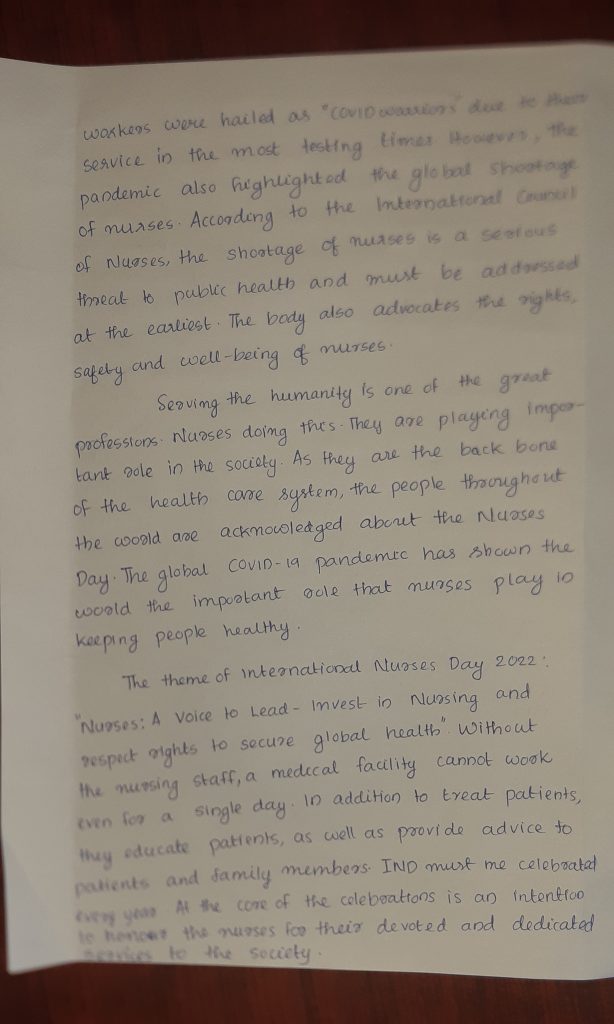 workers were hailed as "COVID warriors" due to their
service in the most testing times. However, the
pandemic also highlighted the global shortage
of nurses. According to the International Council
of Nurses, the shortage of nurses is a serious
threat to public health and must be addressed
at the earliest. The body also advocates the rights,
safety and well-being of nurses.
Serving the humanity is one of the great
professions. Nurses doing this. They are playing impor-
tant role in the society. As they are the back bone
of the health care system, the people throughout
the world are acknowledged about the Nurses
Day. The global COVID-19 pandemic has shown the
world the important role that nurses play in
keeping people healthy.
The theme of International Nurses Day 2022:
"Nurses: A Voice to Lead - Invest in Nursing and
respect rights to secure global health". Without
the nursing staff, a medical facility cannot work
even for a single day. In addition to treat patients,
they educate patients, as well as provide advice to
patients and family members. IND must me celebrated
every year. At the core of the celebrations is an intention
to honour the nurses for their devoted and dedicated
services to the society.